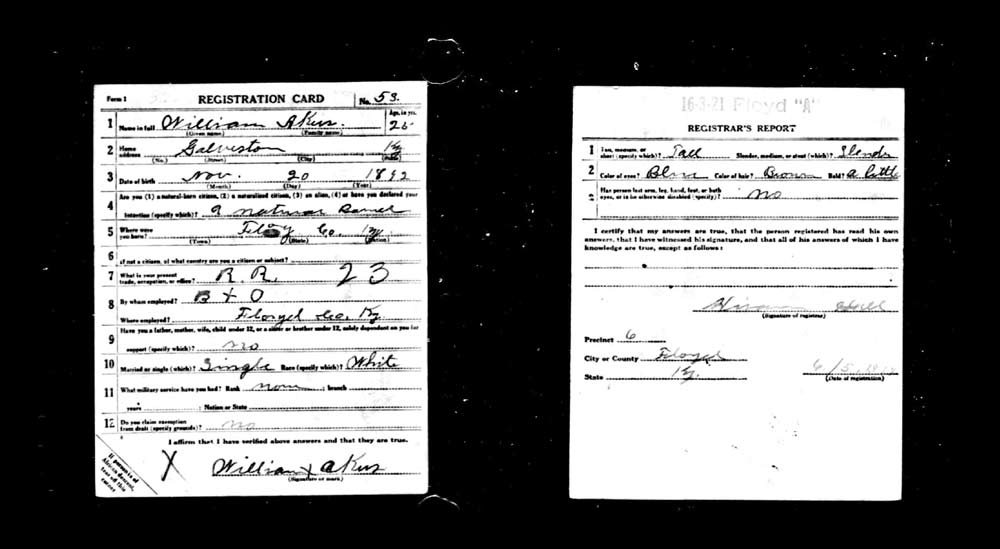 Form 1
REGISTRATION CARD No. 53
1 Name in full William Akus. Age, in yrs. 25
(Given name) (Family name)
2 Home address Galveston Ky
(No.) (Street) (City) (State)
3 Date of birth Nov. 20 1892
(Month) (Day) (Year)
4 Are you (1) a natural-born citizen, (2) a naturalized citizen, (3) an alien, (4) or have you declared your
intention (specify which)? a natural
5 Where were you born? Co. Ky
(Town) (State) (Nation)
6 If not a citizen, of what country are you a citizen or subject?
7 What is your present trade, occupation, or office? R. R. 23
8 By whom employed? B + O
Where employed? Floyd Co. Ky.
9 Have you a father, mother, wife, child under 12, or a sister or brother under 12, solely dependent on you for
support (specify which)? no
10 Married or single (which)? Single Race (specify which)? White
11 What military service have you had? Rank none ; branch
years ; Nation or State
12 Do you claim exemption from draft (specify grounds)? no
I affirm that I have verified above answers and that they are true.
X William x Akus
(Signature or mark)
If person is of
African descent,
tear off this
corner
16-3-21 Floyd "A"
REGISTRAR'S REPORT
1 Tall, medium, or short (specify which)? Tall Slender, medium, or stout (which)? Slender
2 Color of eyes? Blue Color of hair? Brown Bald? a little
3 Has person lost arm, leg, hand, foot, or both
eyes, or is he otherwise disabled (specify)? no
I certify that my answers are true, that the person registered has read his own
answers, that I have witnessed his signature, and that all of his answers of which I have
knowledge are true, except as follows:
Hiram Hall
(Signature of registrar)
Precinct 6
City or County Floyd
State Ky. 6/5/1917
(Date of registration)